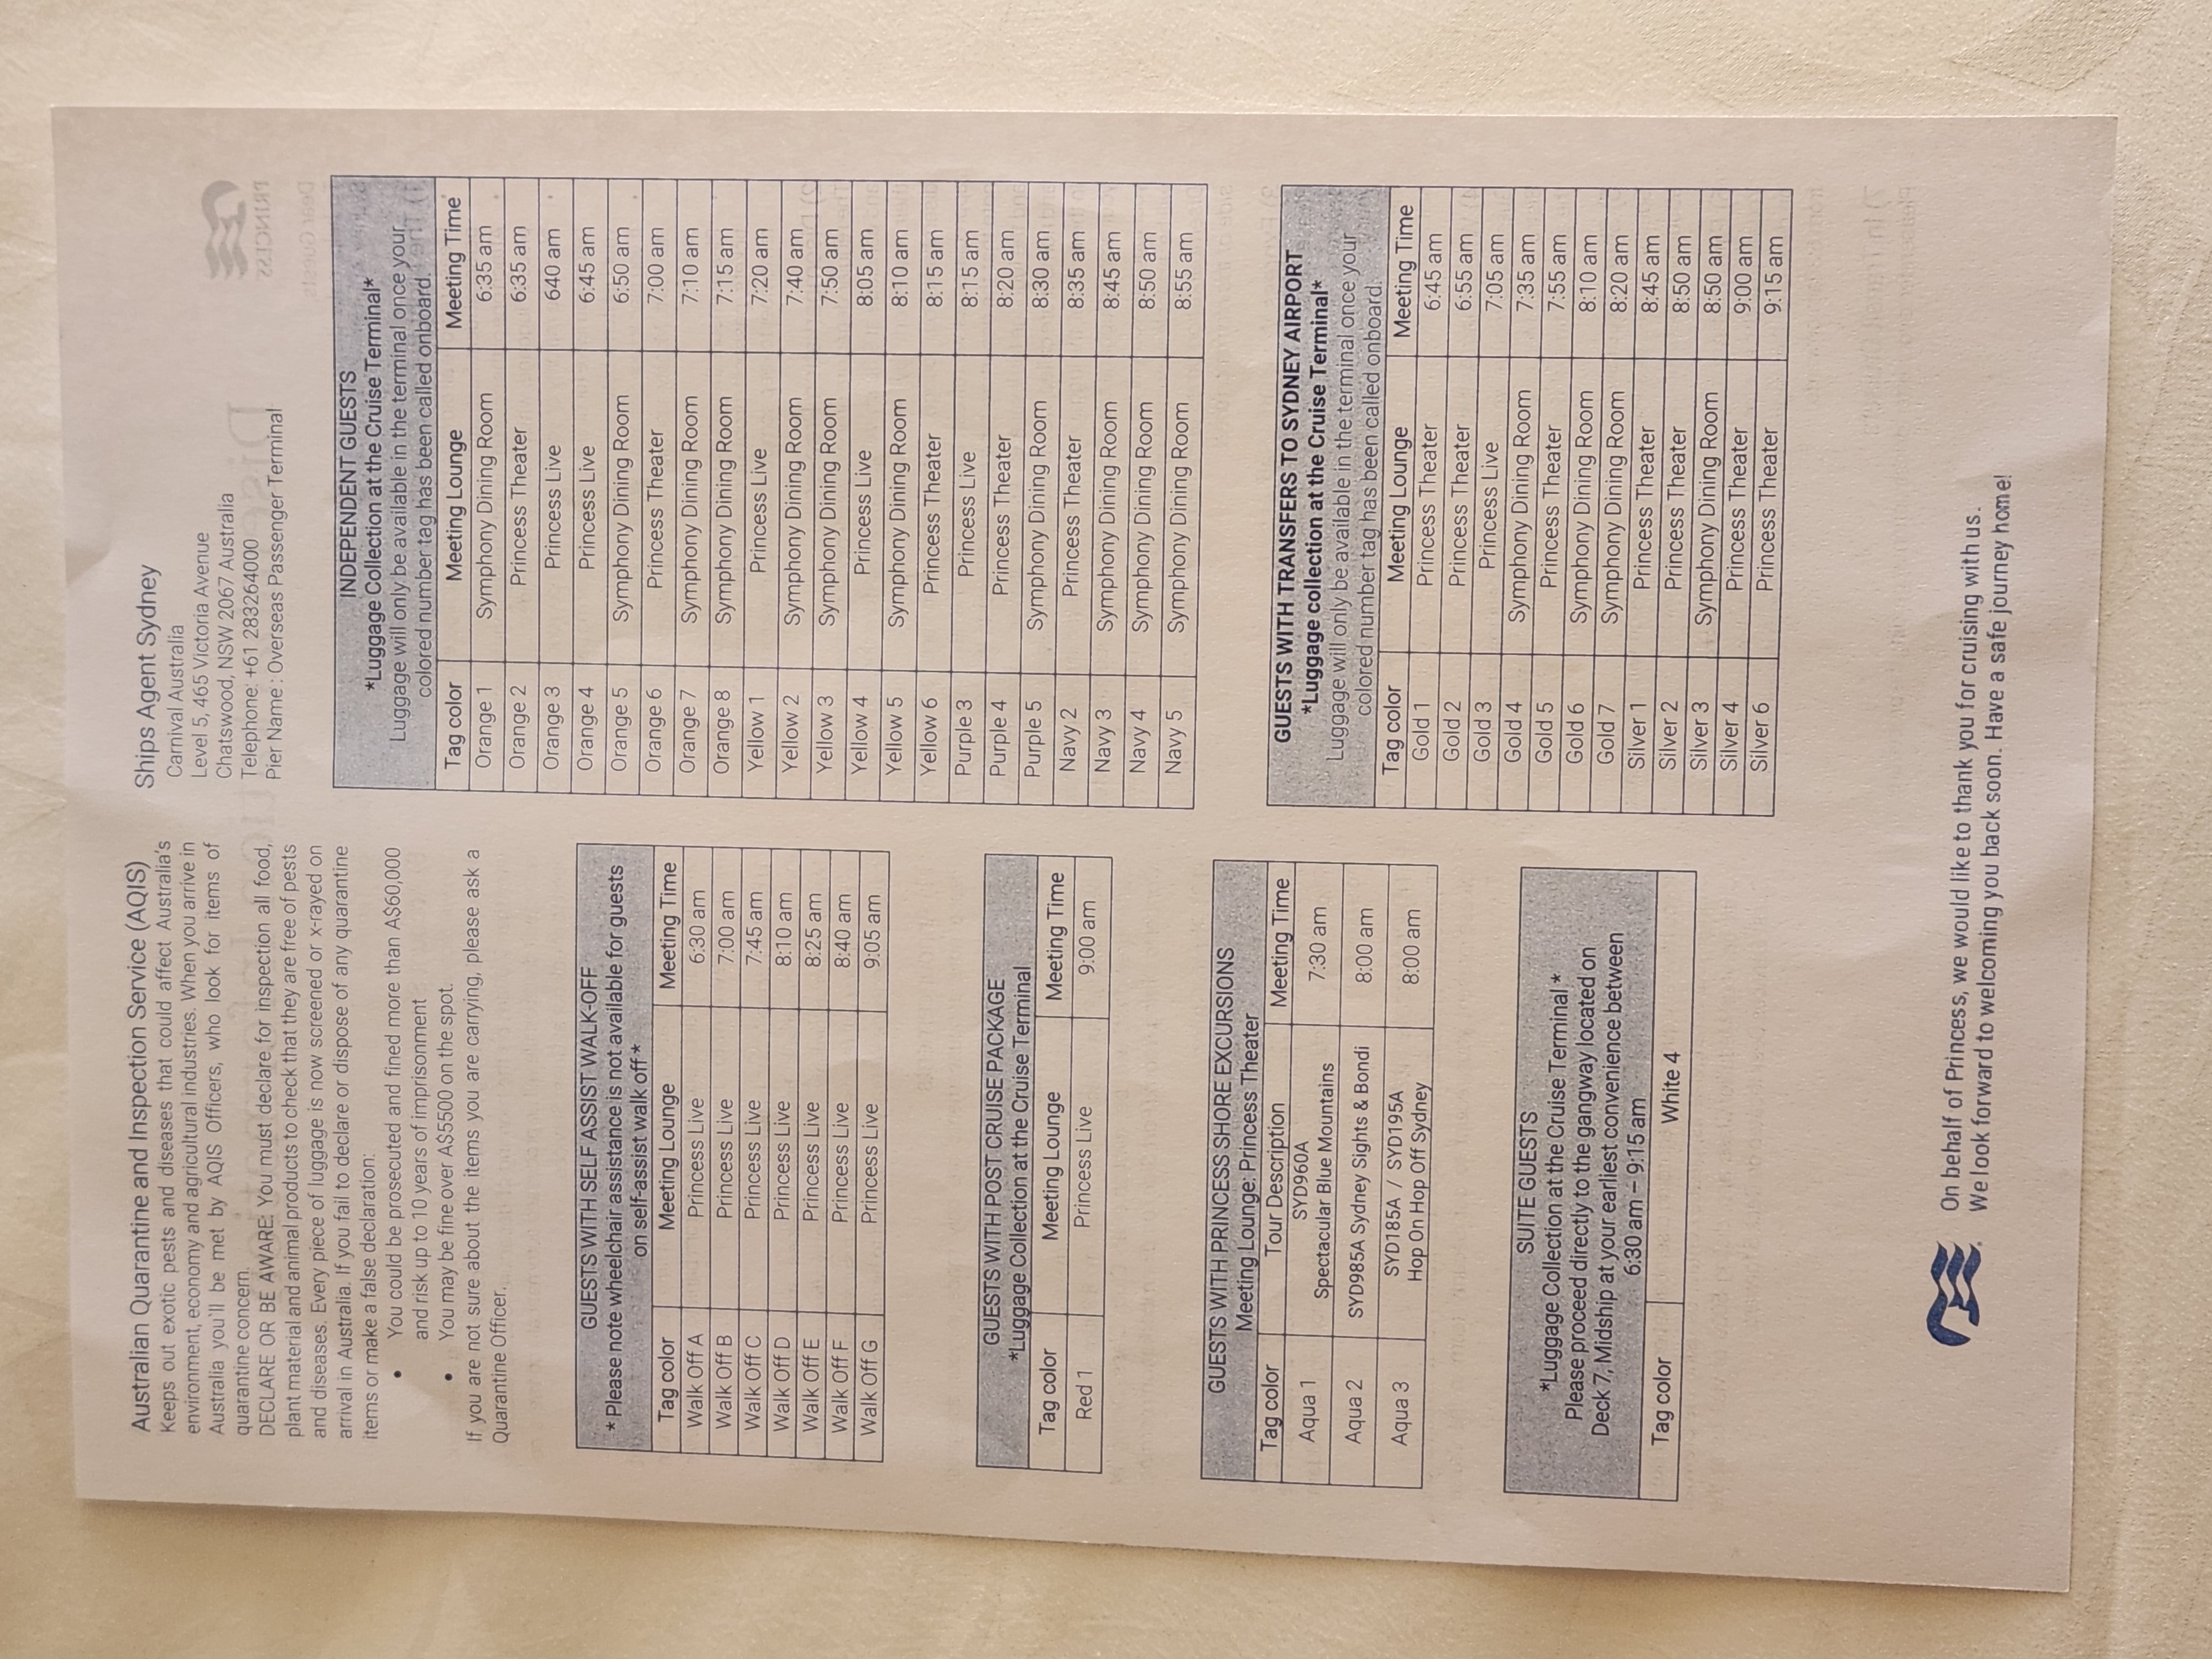 Australian Quarantine and Inspection Service (AQIS)
Keeps out exotic pests and diseases that could affect Australia's
environment, economy and agricultural industries. When you arrive in
Australia you'll be met by AQIS Officers, who look for items of
quarantine concern.
DECLARE OR BE AWARE: You must declare for inspection all food,
plant material and animal products to check that they are free of pests
and diseases. Every piece of luggage is now screened or x-rayed on
arrival in Australia. If you fail to declare or dispose of any quarantine
items or make a false declaration:
• You could be prosecuted and fined more than A$60,000
and risk up to 10 years of imprisonment
• You may be fine over A$5500 on the spot.
If you are not sure about the items you are carrying, please ask a
Quarantine Officer.
GUESTS WITH SELF ASSIST WALK-OFF
*Please note wheelchair assistance is not available for guests
on self-assist walk off*
Tag color Meeting Lounge Meeting Time
Walk Off A Princess Live 6:30 am
Walk Off B Princess Live 7:00 am
Walk Off C Princess Live 7:45 am
Walk Off D Princess Live 8:10 am
Walk Off E Princess Live 8:25 am
Walk Off F Princess Live 8:40 am
Walk Off G Princess Live 9:05 am
GUESTS WITH POST CRUISE PACKAGE
*Luggage Collection at the Cruise Terminal
Tag color Meeting Lounge Meeting Time
Red 1 Princess Live 9:00 am
GUESTS WITH PRINCESS SHORE EXCURSIONS
Meeting Lounge: Princess Theater
Tag color Tour Description Meeting Time
Aqua 1 SYD960A
Spectacular Blue Mountains 7:30 am
Aqua 2 SYD985A Sydney Sights & Bondi 8:00 am
Aqua 3 SYD185A / SYD195A
Hop On Hop Off Sydney 8:00 am
SUITE GUESTS
*Luggage Collection at the Cruise Terminal*
Please proceed directly to the gangway located on
Deck 7, Midship at your earliest convenience between
6:30am – 9:15am
Tag color White 4
Ships Agent Sydney
Carnival Australia
Level 5, 465 Victoria Avenue
Chatswood, NSW 2067 Australia
Telephone: +61 283264000
Pier Name : Overseas Passenger Terminal
INDEPENDENT GUESTS
*Luggage Collection at the Cruise Terminal*
Luggage will only be available in the terminal once your
colored number tag has been called onboard.
Tag color Meeting Lounge Meeting Time
Orange 1 Symphony Dining Room 6:35 am
Orange 2 Princess Theater 6:35 am
Orange 3 Princess Live 640 am
Orange 4 Princess Live 6:45 am
Orange 5 Symphony Dining Room 6:50 am
Orange 6 Princess Theater 7:00 am
Orange 7 Symphony Dining Room 7:10 am
Orange 8 Symphony Dining Room 7:15 am
Yellow 1 Princess Live 7:20 am
Yellow 2 Symphony Dining Room 7:40 am
Yellow 3 Symphony Dining Room 7:50 am
Yellow 4 Princess Live 8:05 am
Yellow 5 Symphony Dining Room 8:10 am
Yellow 6 Princess Theater 8:15 am
Purple 3 Princess Live 8:15 am
Purple 4 Princess Theater 8:20 am
Purple 5 Symphony Dining Room 8:30 am
Navy 2 Princess Theater 8:35 am
Navy 3 Symphony Dining Room 8:45 am
Navy 4 Symphony Dining Room 8:50 am
Navy 5 Symphony Dining Room 8:55 am
GUESTS WITH TRANSFERS TO SYDNEY AIRPORT
*Luggage collection at the Cruise Terminal*
Luggage will only be available in the terminal once your
colored number tag has been called onboard.
Tag color Meeting Lounge Meeting Time
Gold 1 Princess Theater 6:45 am
Gold 2 Princess Theater 6:55 am
Gold 3 Princess Live 7:05 am
Gold 4 Symphony Dining Room 7:35 am
Gold 5 Princess Theater 7:55 am
Gold 6 Symphony Dining Room 8:10 am
Gold 7 Symphony Dining Room 8:20 am
Silver 1 Princess Theater 8:45 am
Silver 2 Princess Theater 8:50 am
Silver 3 Symphony Dining Room 8:50 am
Silver 4 Princess Theater 9:00 am
Silver 6 Princess Theater 9:15 am
On behalf of Princess, we would like to thank you for cruising with us.
We look forward to welcoming you back soon. Have a safe journey home!